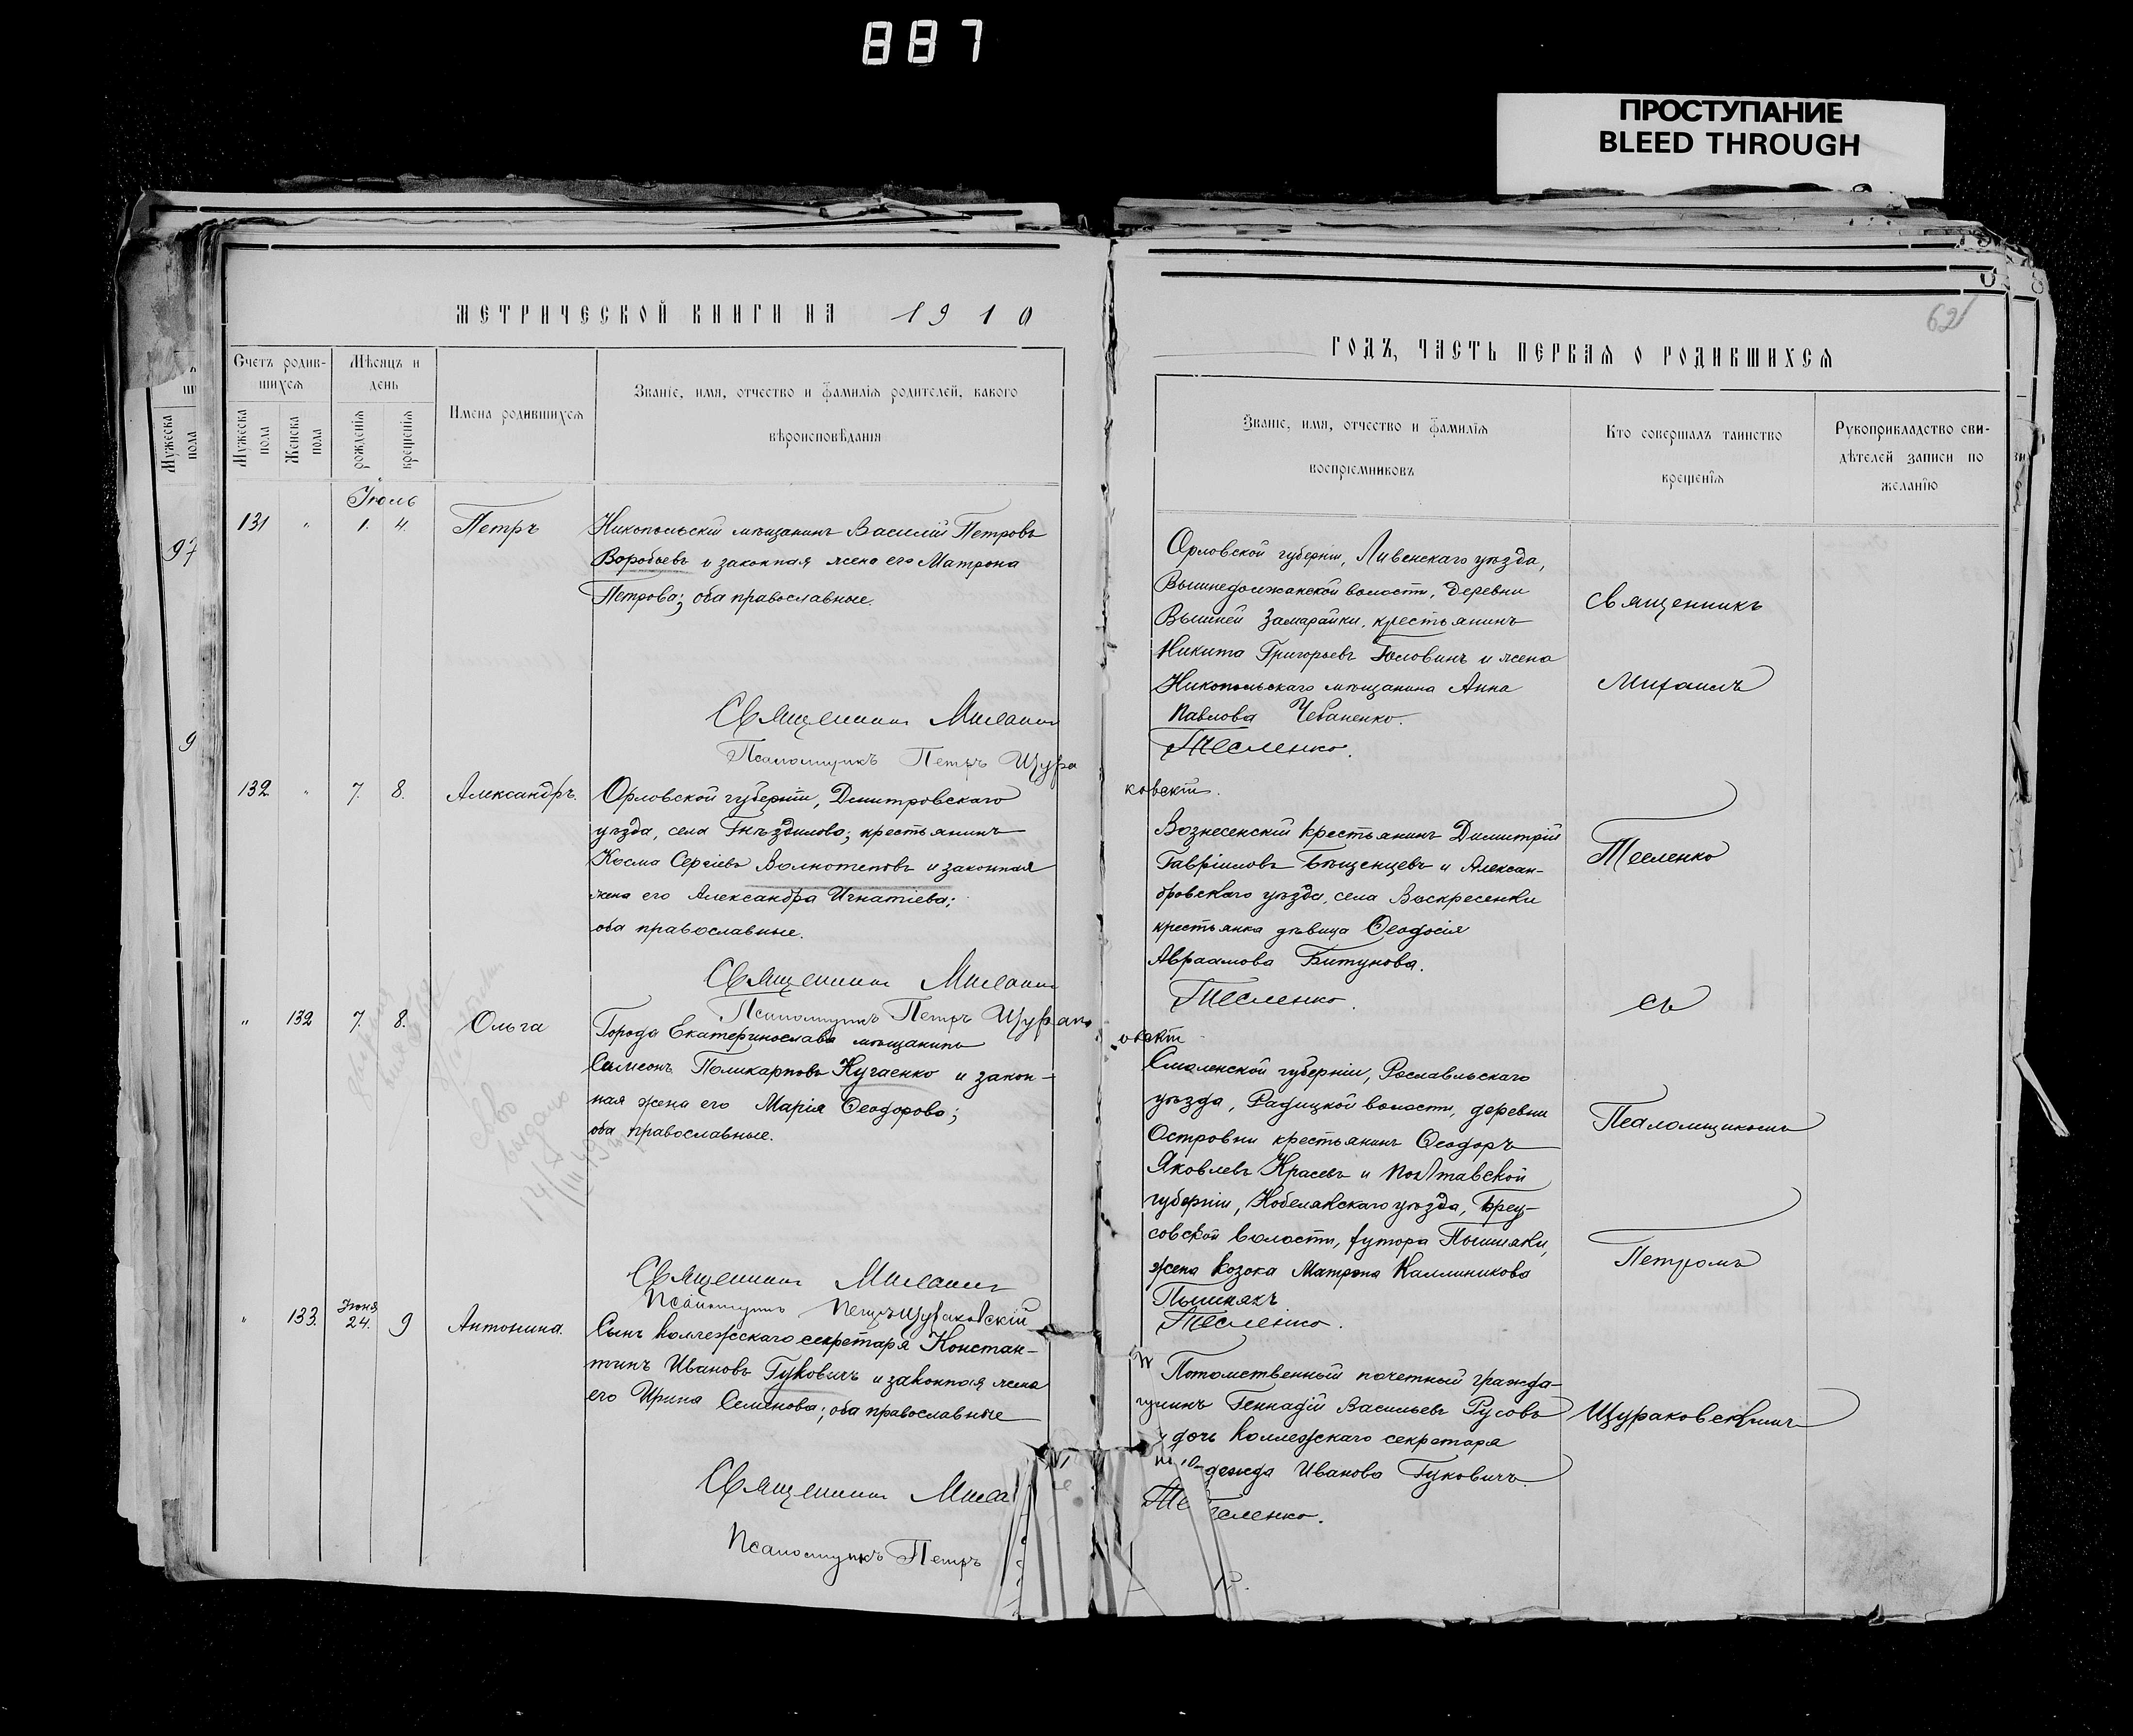 887
ПРОСТУПАНИЕ
BLEED THROUGH
МЕТРИЧЕСКОЙ КНИГИ НА 1910
Счетъ родив-
шихся
Мѣсяцъ и
день
Имена родившихся
Званіе, имя, отчество и фамилія родителей, какого
вѣроисповѣданія
Мужеска пола
Женска пола
рожденія
крещенія
Іюль
131 " 1. 4. Петръ
Никопольскій мѣщанинъ Василій Петровъ
Воробьевъ и законная жена его Матрона
Петрова; оба православные.
Священникъ Михаилъ
Псаломщикъ Петръ Щура
132 " 7. 8. Александръ.
Орловской губерніи, Дмитровскаго
уѣзда, села Гнѣздилова; крестьянинъ
Косма Сергіевъ и законная
жена его Александра Игнатіева;
оба православные.
Священникъ Михаилъ
Псаломщикъ Петръ Щурако
" 132 7. 8. Ольга
Города Екатеринослава мѣщанинъ
Самсонъ Поликарповъ Кугаенко и закон-
ная жена его Марія Ѳеодорова;
оба православные.
выдано
Священникъ Михаилъ
Псаломщикъ Петръ Щураковскій
" 133. Іюня 24. 9 Антонина.
Сынъ коллежскаго секретаря Констан-
тинъ Ивановъ Гуковичъ и законная жена
его Ирина Семенова; оба православные
Священникъ Миха
Псаломщикъ Петръ
Мужеска пола
97
9
62
ГОДЪ, ЧАСТЬ ПЕРВАЯ О РОДИВШИХСЯ
Званіе, имя, отчество и фамилія
воспріемниковъ
Кто совершалъ таинство
крещенія
Рукоприкладство сви-
дѣтелей записи по
желанію
Орловской губерніи, Ливенскаго уѣзда,
Вышнедолжанской волости, деревни
Вышней Замарайки, крестьянинъ
Никита Григорьевъ Головинъ и жена
Никопольскаго мѣщанина Анна
Павлова Чебаненко.
Тесленко.
ковскій.
Вознесенскій крестьянинъ Димитрій
Гавріиловъ и Алексан-
дровскаго уѣзда, села Воскресенки
крестьянка дѣвица Ѳеодосія
Авраамова Битунова.
Тесленко.
овскій
Смоленской губерніи, Рославльскаго
уѣзда, Радицкой волости, деревни
Островни крестьянинъ Ѳеодоръ
Яковлевъ Красевъ и Полтавской
губерніи, Кобелякскаго уѣзда, Бреу-
совской волости, хутора Пышняки,
жена козака Матрона Каллиникова
Пышнякъ
Тесленко.
Потомственный почетный гражда-
нинъ Геннадій Васильевъ Русовъ
и дочь коллежскаго секретаря
Надежда Иванова Гуковичъ.
Тесленко.
Священникъ
Михаилъ
Тесленко
съ
Псаломщикомъ
Петромъ
Щураковскимъ